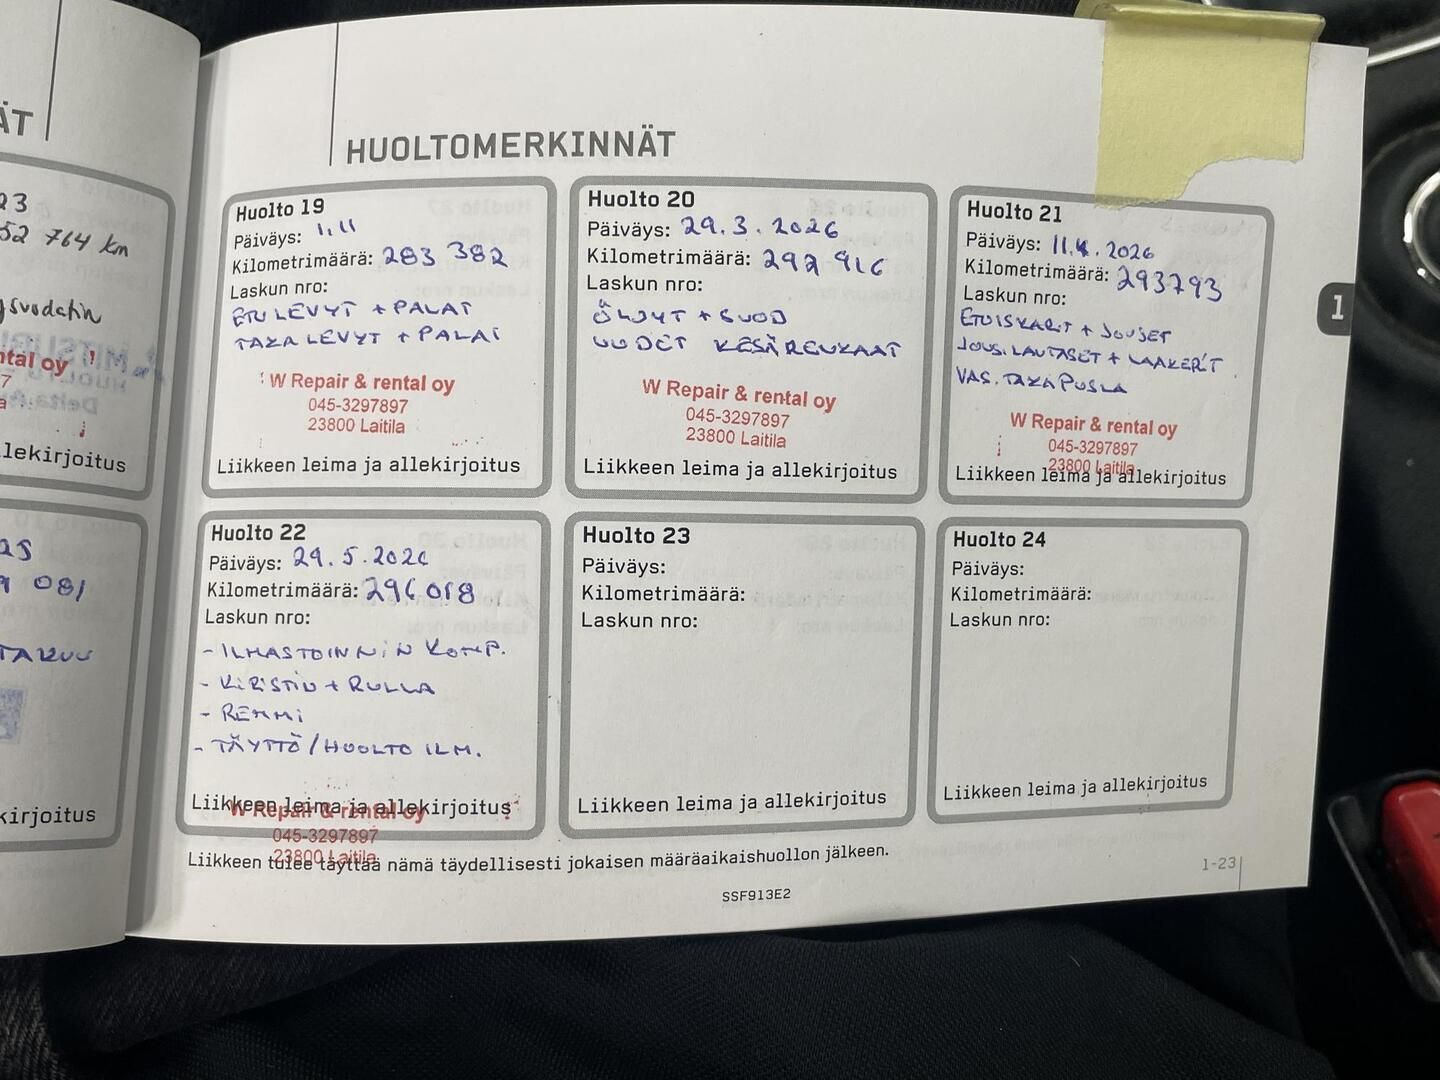 ÄT
23
52 764 km
gsvodatin
ntal oy
7
a
llekirjoitus
25
9 081
TAKUU
kirjoitus
HUOLTOMERKINNÄT
Huolto 19
Päiväys: 1.11
Kilometrimäärä: 283 382
Laskun nro:
ETU LEVYT + PALAT
TAKA LEVYT + PALAT
W Repair & rental oy
045-3297897
23800 Laitila
Liikkeen leima ja allekirjoitus
Huolto 20
Päiväys: 29.3.2026
Kilometrimäärä: 292 916
Laskun nro:
ÖLJYT + SUOD
UUDET KESÄRENKAAT
W Repair & rental oy
045-3297897
23800 Laitila
Liikkeen leima ja allekirjoitus
Huolto 21
Päiväys: 11.4.2026
Kilometrimäärä: 293793
Laskun nro:
ETUISKARIT + JOUSET
JOUSILAUTASET + LAAKERIT
VAS. TAKA PUSLA
W Repair & rental oy
045-3297897
23800 Laitila
Liikkeen leima ja allekirjoitus
Huolto 22
Päiväys: 29.5.2026
Kilometrimäärä: 296 018
Laskun nro:
- ILMASTOINNIN KOMP.
- KIRISTIN + RULLA
- REMMI
- TÄYTTÖ/HUOLTO ILM.
Liikkeen leima ja allekirjoitus
W Repair & rental oy
045-3297897
23800 Laitila
Huolto 23
Päiväys:
Kilometrimäärä:
Laskun nro:
Liikkeen leima ja allekirjoitus
Huolto 24
Päiväys:
Kilometrimäärä:
Laskun nro:
Liikkeen leima ja allekirjoitus
Liikkeen tulee täyttää nämä täydellisesti jokaisen määräaikaishuollon jälkeen.
1-23
SSF913E2
1